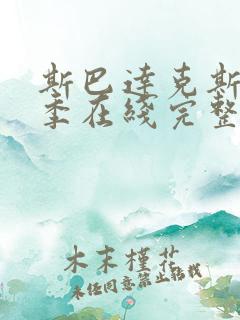 斯巴达克斯
季在线完整
木末槿花
未经同意禁止转载